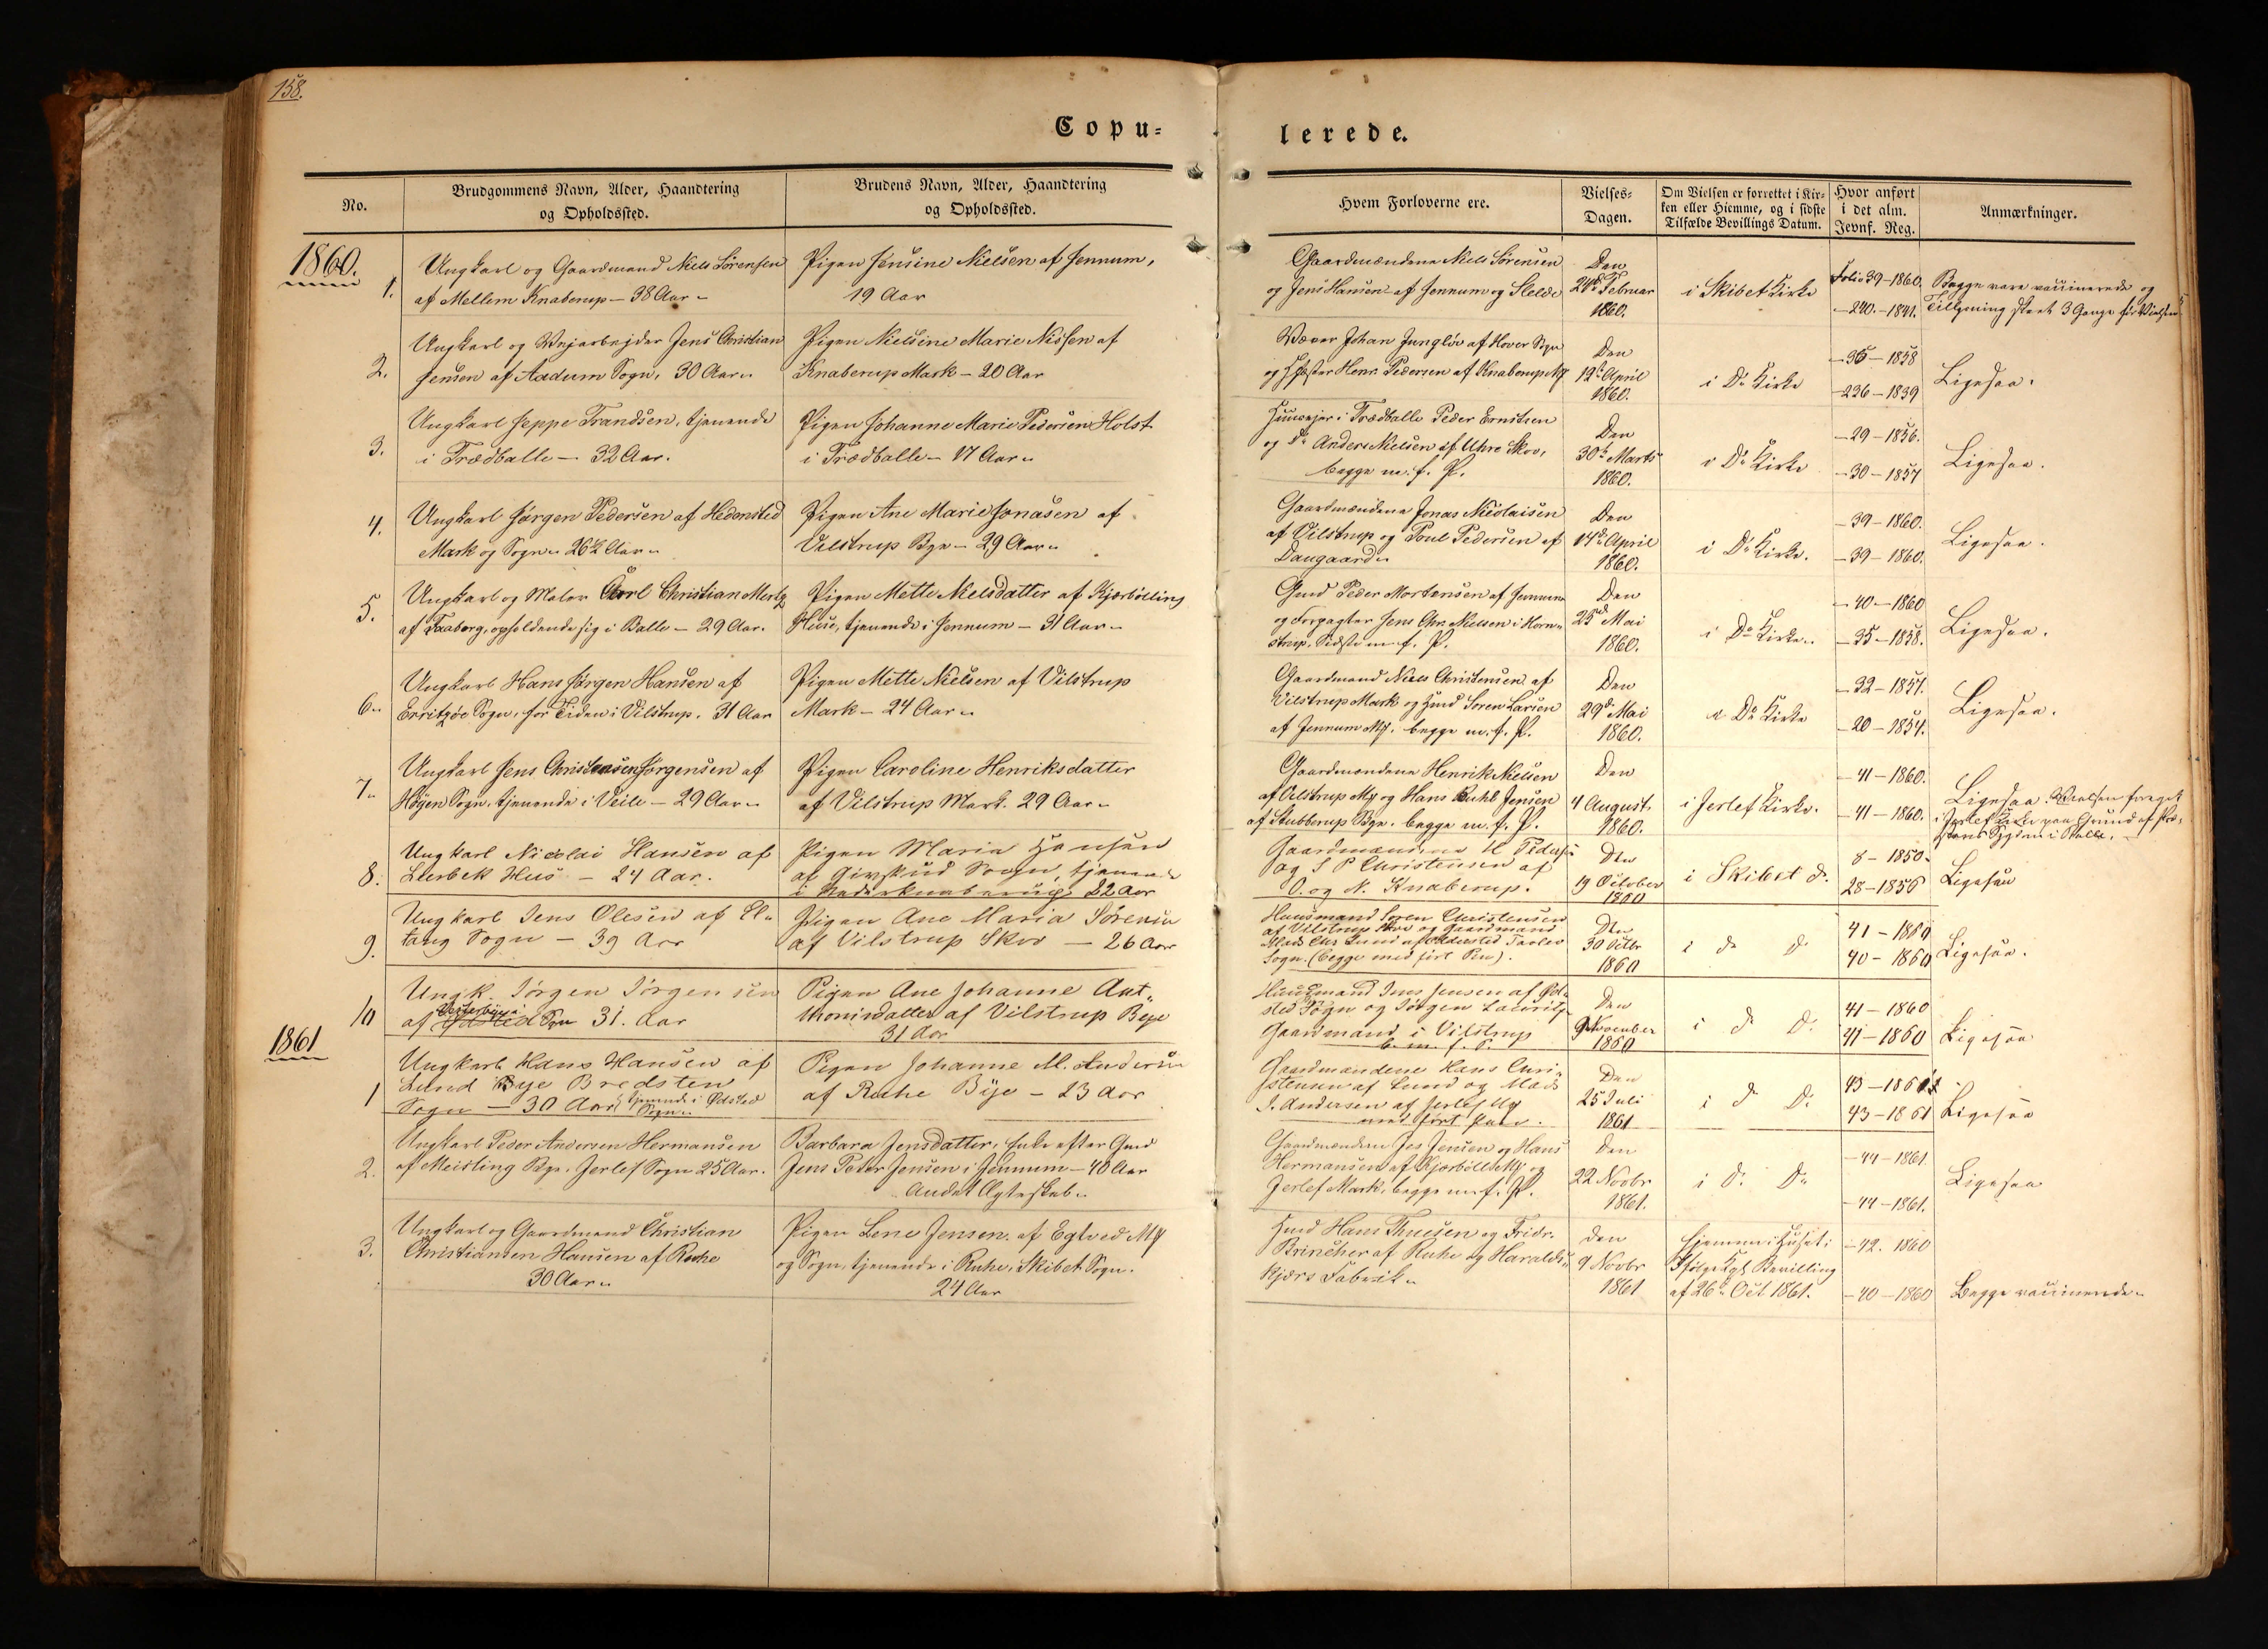 158.
Copu=
lerede.
No.
Brudgommens Navn, Alder, Haandtering
og Opholdssted.
Brudens Navn, Alder, Haandtering
og Opholdssted.
Hvem Forloverne ere.
Vielses=
Dagen.
Om Vielsen er forrettet i Kir=
ken eller Hiemme, og i sidste
Tilfælde Bevillings Datum.
Hvor anført
i det alm.
Jevnf. Reg.
Anmærkninger.
1860.
1.
Ungkarl og Gaardmand Niels Sørensen
af Mellem Knaberup – 38 Aar
Pigen Jensine Nielsen af Jennum,
19 Aar
Gaardmændene Niels Sørensen
og Jens Hansen af Jennum og Slelde
Den
Februar
1860.
i Skibet Kirke
Folio 39 – 1860.
– 240. – 1841.
Begge vare vaccinerede og
Tillysning skeet 3 Gange før Vielsen
2.
Ungkarl og Vejarbejder Jens Christian
Jensen af Aadum Sogn, 30 Aar
Pigen Nielsine Marie Nissen af
Knaberup Mark – 20 Aar
Væver Johan Jungløv af Hover Sogn
og Henr. Pedersen af Knaberup Mk
Den
12te April
1860.
i Do Kirke
– 36 – 1858
– 236 – 1839
Ligesaa.
3.
Ungkarl Jeppe Frandsen, tjenende
i Trædballe – 32 Aar.
Pigen Johanne Marie Pedersen Holst
i Trædballe – 17 Aar
Huusejer i Trædballe Peder Ernstsen
og Do Anders Nielsen af Uhre Skov,
begge m. f. P.
Den
30te Marts
1860.
i Do Kirke
– 29 – 1856.
– 30 – 1857
Ligesaa.
4.
Ungkarl Jørgen Pedersen af Hedensted
Mark og Sogn 26½ Aar
Pigen Ane Marie Jonasen af
Vilstrup Bye – 29 Aar
Gaardmændene Jonas Nicolaisen
af Vilstrup og Poul Pedersen af
Daugaard
Den
14de April
1860.
i Do Kirke.
– 39 – 1860.
– 39 – 1860.
Ligesaa.
5.
Ungkarl og Maler Carl Christian Mertz
af Faaborg, opholdende sig i Balle – 29 Aar.
Pigen Mette Nielsdatter af Kjærbølling
Huse, tjenende i Jennum – 31 Aar
Gmd Peder Mortensen af Jennum
og Forpagter Jens Chr. Nielsen i Horn=
strup. Sidste m. f. P.
Den
25de Mai
1860.
i Do Kirke
– 40 – 1860
– 35 – 1858.
Ligesaa.
6
Ungkarl Hans Jørgen Hansen af
Erritzøe Sogn, for Tiden i Vilstrup. 31 Aar
Pigen Mette Nielsen af Vilstrup
Mark – 24 Aar
Gaardmand Niels Christensen af
Vilstrup Mark og Hmd Søren Larsen
af Jennum Mk. begge m. f. P.
Den
29de Mai
1860.
i Do Kirke
– 32 – 1857.
– 20 – 1854.
Ligesaa.
7
Ungkarl Jens Christensen Jørgensen af
Høyen Sogn, tjenende i Veile – 29 Aar
Pigen Caroline Henriksdatter
af Vilstrup Mark. 29 Aar
Gaardmændene Henrik Nielsen
af Vilstrup Mk og Hans Buhl Jensen
af Stubberup Bye. begge m. f. P.
Den
4 August
1860.
i Jerlef Kirke.
– 41 – 1860.
– 41 – 1860.
Ligesaa. Vielsen foreget
i Jerlef Kirke paa Grund af
Sygdom i
8.
Ungkarl Nicolai Hansen af
Lerbek Hus – 24 Aar.
Pigen Maria Hansen
af Givskud Sogn, tjenende
i Nederknaberup 22 Aar
Gaardmændene H Pedersen
og S P Christensen af
O. og N. Knaberup.
Den
19 October
1860
i Skibet d.
8 – 1850.
28 – 1856
Ligesaa
9.
Ungkarl Jens Olesen af El=
tang Sogn – 39 Aar
Pigen Ane Maria Sørensen
af Vilstrup Skov – 26 Aar
Husmand Soren Christensen
af Vilstrup Skov og Gaardmand
Mads Chr Lund af Taulov
Sogn. (begge med ført Pen).
Den
30 Octbr
1860
i do d
41 – 1860
40 – 1860
Ligesaa.
10
Ungk. Jørgen Jørgensen
Vesterbye i
af Ødsted Sogn 31. Aar
Pigen Ane Johanne Ant=
honisdatter af Vilstrup Bye
31 Aar
Huusmand Jens Jensen af Ød=
sted Sogn og Jørgen Lauridsen
Gaardmand i Vilstrup
b. m. f. P.
Den
9 November
1860
i d D.
41 – 1860
41 – 1860
Ligesaa
1861
1
Ungkarl Hans Hansen af
Lund Bye Bredsten
Sogn – 30 Aar tjenende i Ødsted
Sogn
Pigen Johanne M. Andersen
af Ruhe Bye – 23 Aar
Gaardmændene Hans Chri=
stensen af Lund og Mads
J. Andersen af Jerlef Mk
med ført Pen.
Den
25 Juli
1861
i d D.
43 – 1861
43 – 1861
Ligesaa
2.
Ungkarl Peder Andersen Hermansen
af Meisling Bye, Jerlef Sogn 25 Aar.
Barbara Jensdatter, Enke efter Gmd
Jens Peter Jensen i Jennum – 40 Aar
Andet Ægteskab
Gaardmændene Jes Jensen og Hans
Hermansen af Kjærbølll Mk og
Jerlef Mark, begge m. f. P.
Den
22 Novbr
1861.
i D. Do
– 44 – 1861.
– 44 – 1861.
Ligesaa
3.
Ungkarl og Gaardmand Christian
Christiansen Hansen af Ruhe
30 Aar
Pigen Lene Jensen af Egtved Mk
og Sogn, tjenende i Ruhe, Skibet Sogn.
24 Aar
Hmd Hans Thuesen og Fridr.
Brincker af Ruhe og Haralds=
kjærs Fabrik
Den
9 Novbr
1861
Hjemme i Huset;
Ifølge Kgl. Bevilling
af 26de Oct 1861.
– 42. 1860
– 40 – 1860
Begge vaccinerede